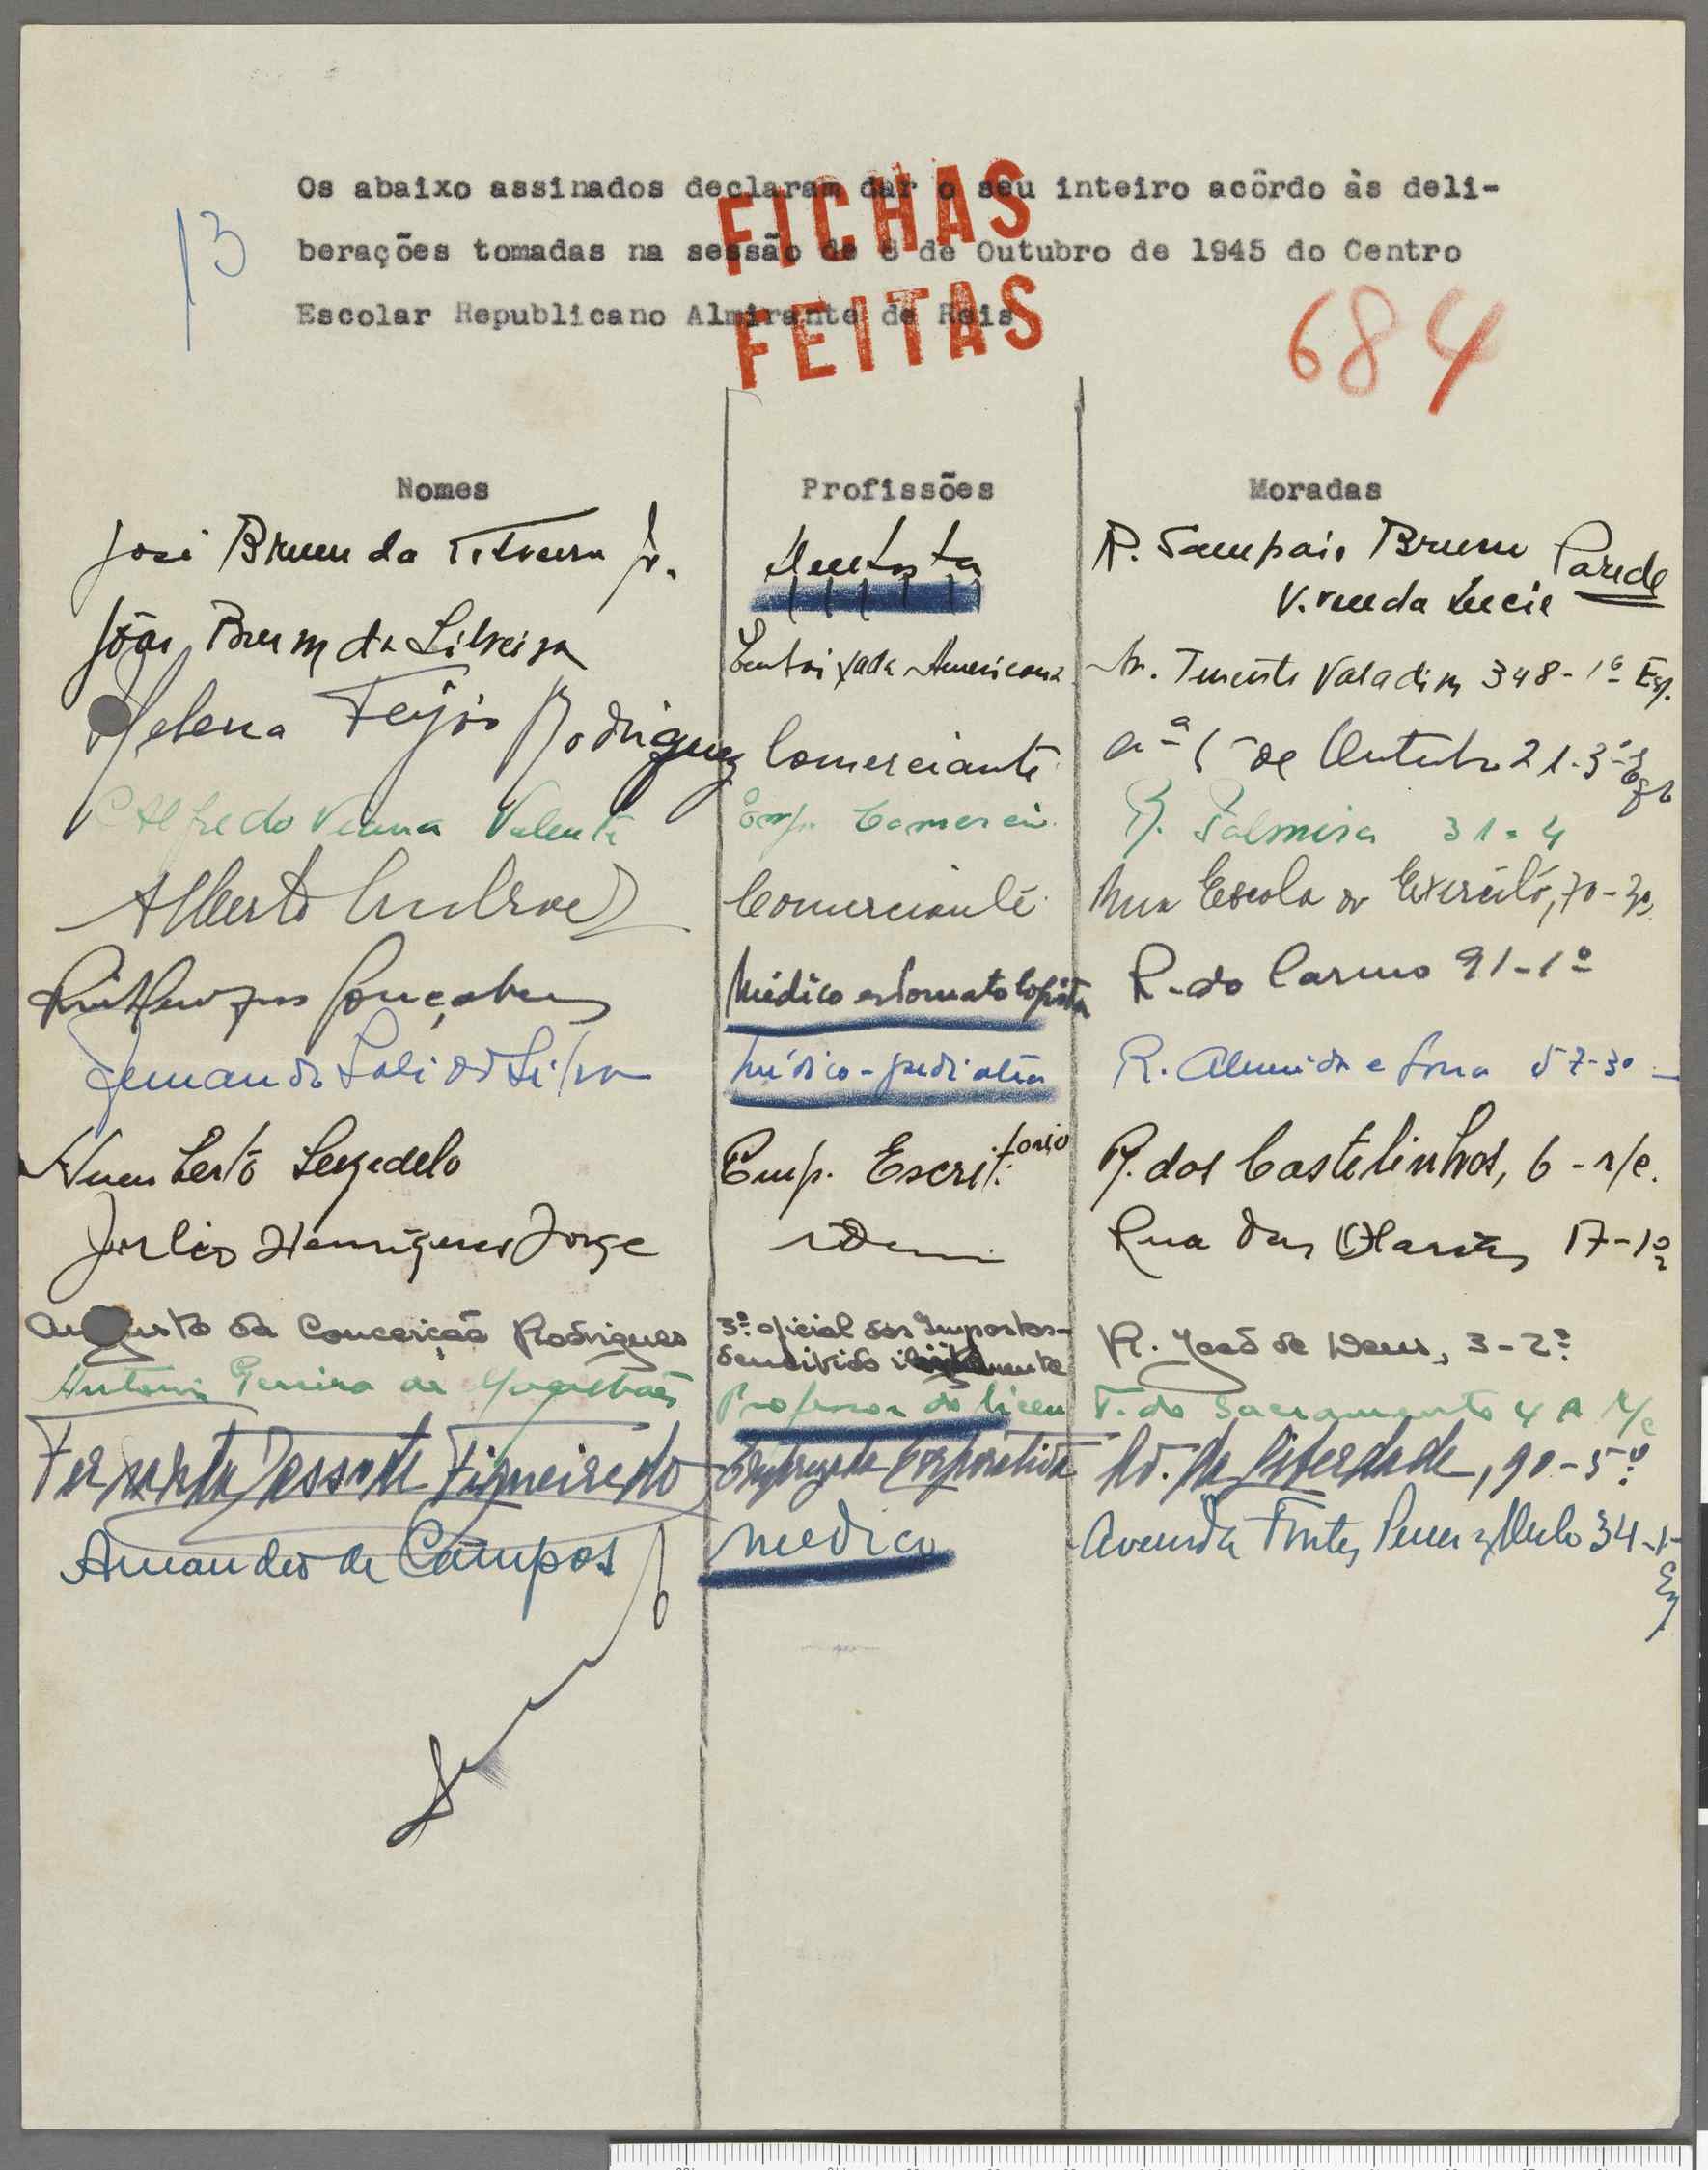 Os abaixo assinados declaram dar o seu inteiro acôrdo às deli-
13
berações tomadas na sessão de 8 de Outubro de 1945 do Centro
Escolar Republicano Almirante de Reis
FICHAS
FEITAS
684
Nomes Profissões Moradas
José Brum da Silveira Jr. Dentista R. Sampaio Bruno Parede
V.venda Lucie
João Brum da Silveira Embaixada Americana Av. Tenente Valadim 348-1º Esq.
Helena Feijóo Rodriguez Comerciante 5 de Outubro 21-3º
Alfredo Viana Valente Emp. Comercio R. Palmira 31-4
Alberto Comerciante Rua Escola do Exército, 70-3º
Gonçalves Médico estomatologista R. do Carmo 91-1º
Fernando Sali da Silva Médico-pediatra R. Almeida e Sousa 57-3º
Humberto Segedelo Emp. Escritorio R. dos Castelinhos, 6-r/c.
Julio Henriques Jorge idem Rua das Olarias 17-1º
Augusto da Conceição Rodrigues 3º oficial dos Impostos-
demitido R. João de Deus, 3-2º
Antonio Pereira de Magalhães Professor do liceu T. do Sacramento 4 A R/c
Fernando Figueiredo Empregado Corporativo Av. da Liberdade, 90-5º
Amandio de Campos Medico Avenida Fontes Pereira Melo 34-1-
Eq